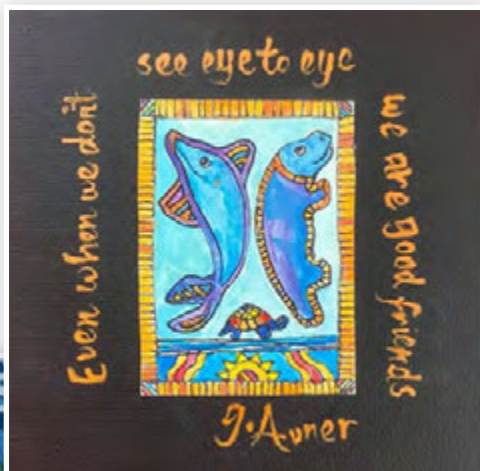 Even when we don't
see eye to eye
we are good friends
J. Avner